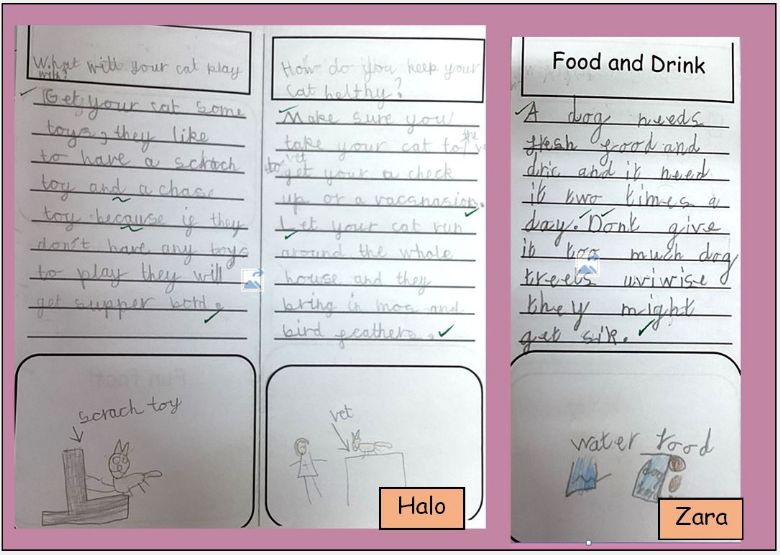 What will your cat play
with?
Get your cat some
toys, they like
to have a scrach
toy and a chase
toy because if they
don't have any toys
to play they will
get supper bord.
scrach toy
How do you keep your
cat helthy?
Make sure you
take your cat to the
vet to get your a check
up or a vacsnasion.
Let your cat run
around the whole
house and they
bring in mos and
bird feathers.
vet
Halo
Food and Drink
A dog needs
fresh food and
dric and it need
it two times a
day. Dont give
it too much dog
treets uviwise
they might
get sik.
water food
Zara